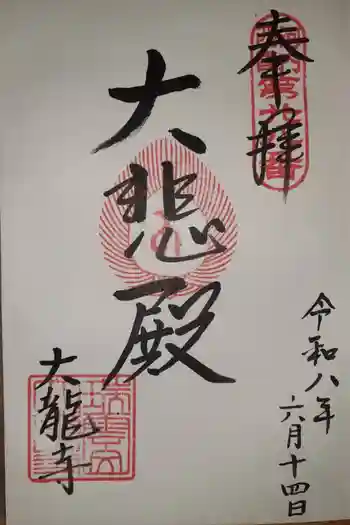 奉拝
令和八年
六月十四日
大悲殿
大龍寺